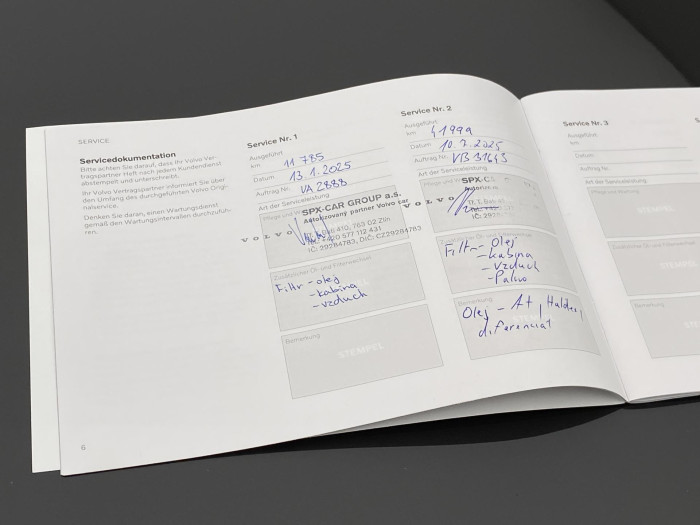 SERVICE
Servicedokumentation
Bitte achten Sie darauf, dass Ihr Volvo Ver-
tragspartner Heft nach jedem Kundendienst
abstempelt und unterschreibt.
Ihr Volvo Vertragspartner informiert Sie über
den Umfang des durchgeführten Volvo Origi-
nalservice.
Denken Sie daran, einen Wartungsdienst
gemäß den Wartungsintervallen durchzufüh-
ren.
6
Service Nr. 1
Ausgeführt
km 11 785
Datum 13.1.2025
Auftrag Nr. VA 2888
Art der Serviceleistung
Pflege und
SPX-CAR GROUP a.s.
Autorizovaný partner Volvo car
VOLVO
Tř. T. Bati 410, 763 02 Zlín
Tel.: +420 577 112 431
IČ: 29284783, DIČ: CZ29284783
Zusätzlicher Öl- und Filterwechsel
Filtr - olej
- kabina
- vzduch
Bemerkung
STEMPEL
Service Nr. 2
Ausgeführt
km 41999
Datum 10.7.2025
Auftrag Nr. VB 31643
Art der Serviceleistung
SPX-C
VOLVO
Filtr - Olej
- kabina
- vzduch
- Palivo
Bemerkung
Olej - At, Haldex,
diferenciál
Service Nr. 3
Ausgeführt
km
Datum
Auftrag Nr.
Art der Serviceleistung
Bemerkung
STEMPEL